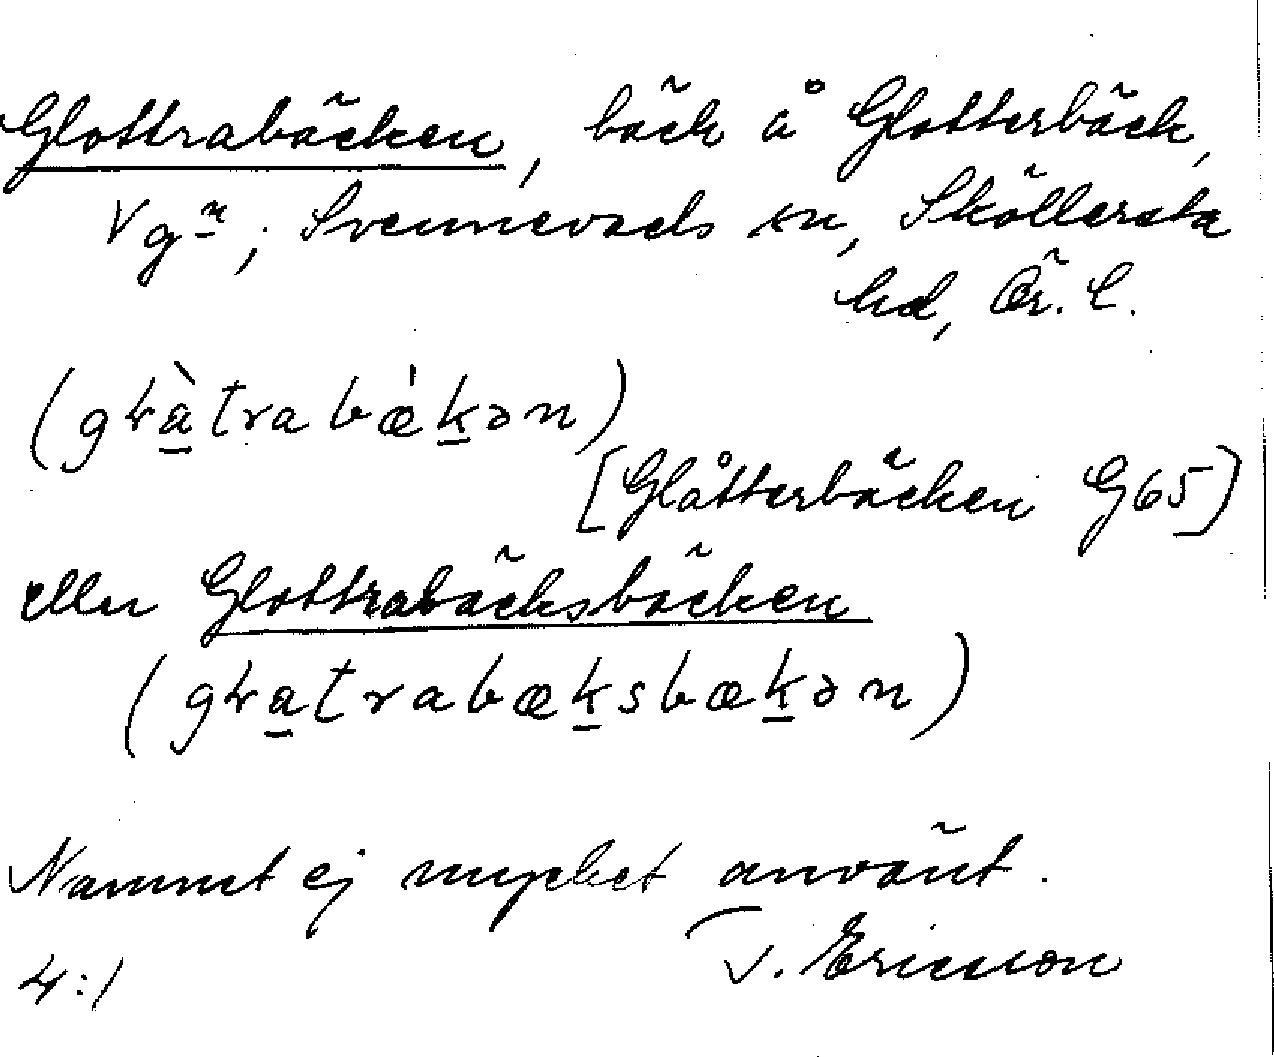 Glottrabäcken, bäck å Glotterbäck,
Vgn; Svennevads sn, Sköllersta
hd, Ör. l.
(gɫà̱trabæ̀ḵən)
[Glåtterbäcken G65]
eller Glottrabäcksbäcken
(gɫa̱trabæḵsbæḵən)
Namnet ej mycket använt.
J. Ericsson
4:1